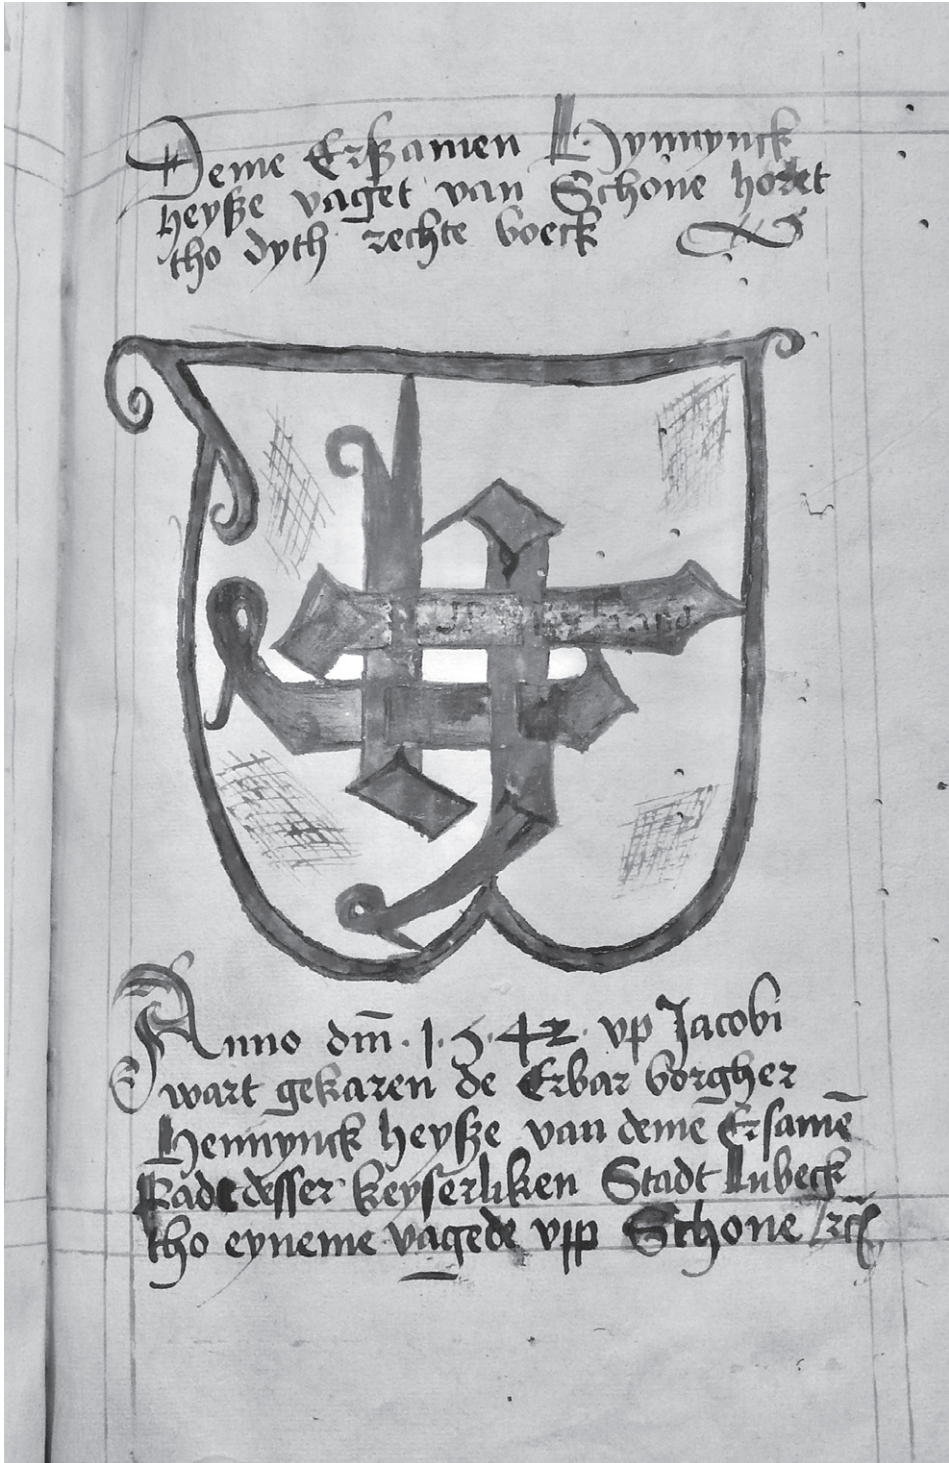 Deme Erßamen Hynnynck
heyße vaget van Schone horet
tho dyth rechte boeck
Anno dm̄ · 1 · 5 · 4 2 · vp Jacobi
wart gekaren de Erbar borgher
Hennynck heyße van deme Ersamē
Rade desser keyserliken Stadt Lubeck
tho eyneme vagede vpp Schone